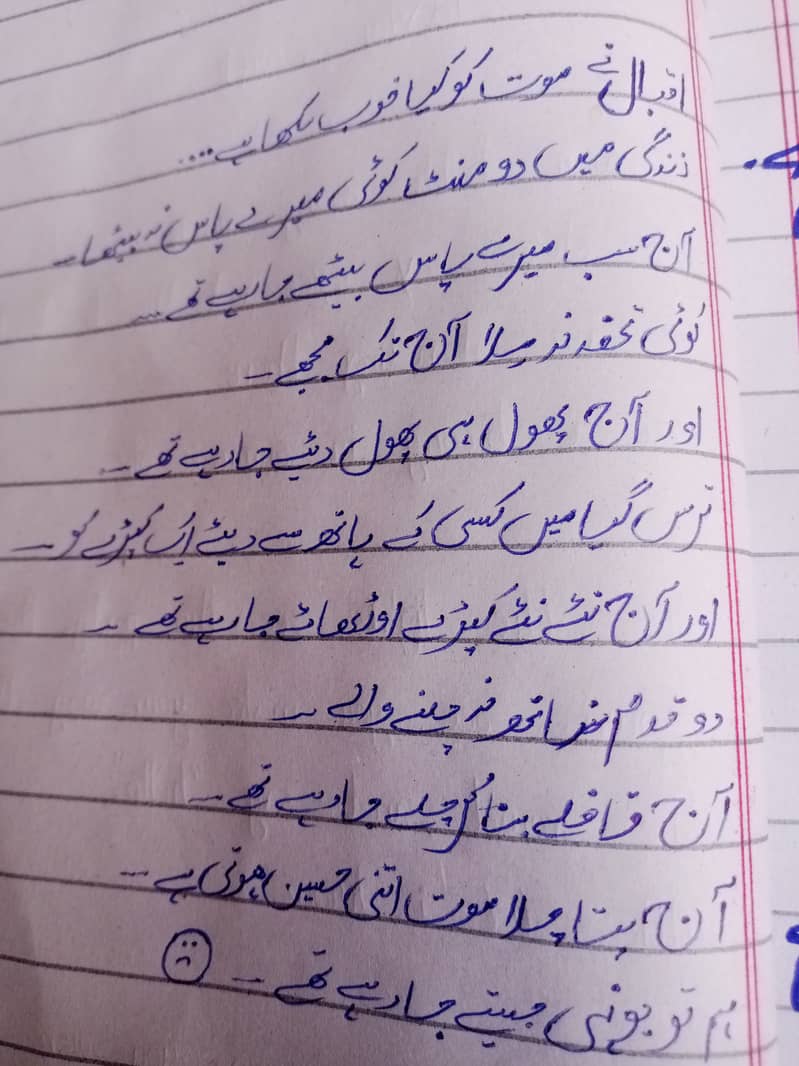 اقبال نے موت کو کیا خوب لکھا ہے....
زندگی میں دو منٹ کوئی میرے پاس نہ بیٹھا۔۔
آج سب میرے پاس بیٹھے جا رہے تھے۔۔
کوئی تحفہ نہ ملا آج تک مجھے۔۔
اور آج پھول ہی پھول دیئے جا رہے تھے۔۔
ترس گیا میں کسی کے ہاتھ سے دیئے اک کپڑے کو۔۔
اور آج نئے نئے کپڑے اوڑھائے جا رہے تھے۔۔
دو قدم ساتھ نہ چلنے والے۔۔
آج قافلے بنا کر چلے جا رہے تھے۔۔
آج پتا چلا موت اتنی حسین ہوتی ہے۔۔
ہم تو یونہی جیتے جا رہے تھے۔۔